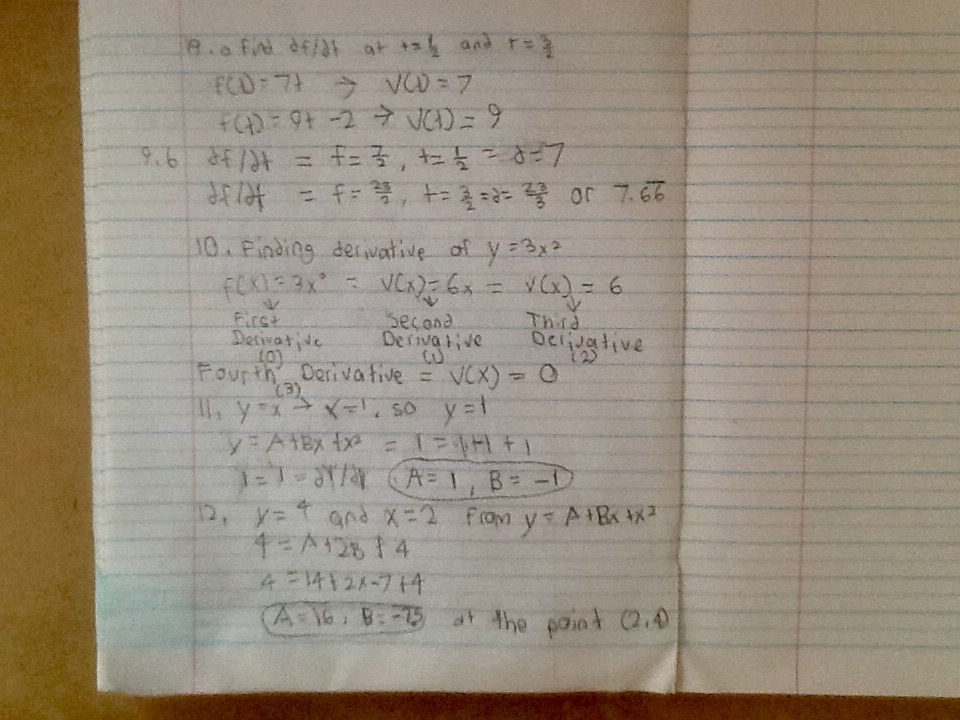 9. a Find df/dt at t=1/2 and t=3/2
f(t)=7t → V(t)=7
f(t)=9t-2 → V(t)=9
9.b df/dt = f=7/2, t=1/2 = d=7
df/dt = f=23/2, t=3/2 = d= 23/3 or 7.66
10. Finding derivative of y=3x²
f(x)=3x² = V(x)=6x = V(x)=6
First Second Third
Derivative Derivative Derivative
(0) (1) (2)
Fourth Derivative = V(x) = 0
(3)
11. y=x → x=1, so y=1
y=A+Bx+x² = 1 = 1+1+1
1=1= A=1, B=-1
12. y=4 and x=2 from y=A+Bx+x²
4=A+2B+4
4=14+2x-7+4
A=16, at the point (2,4)